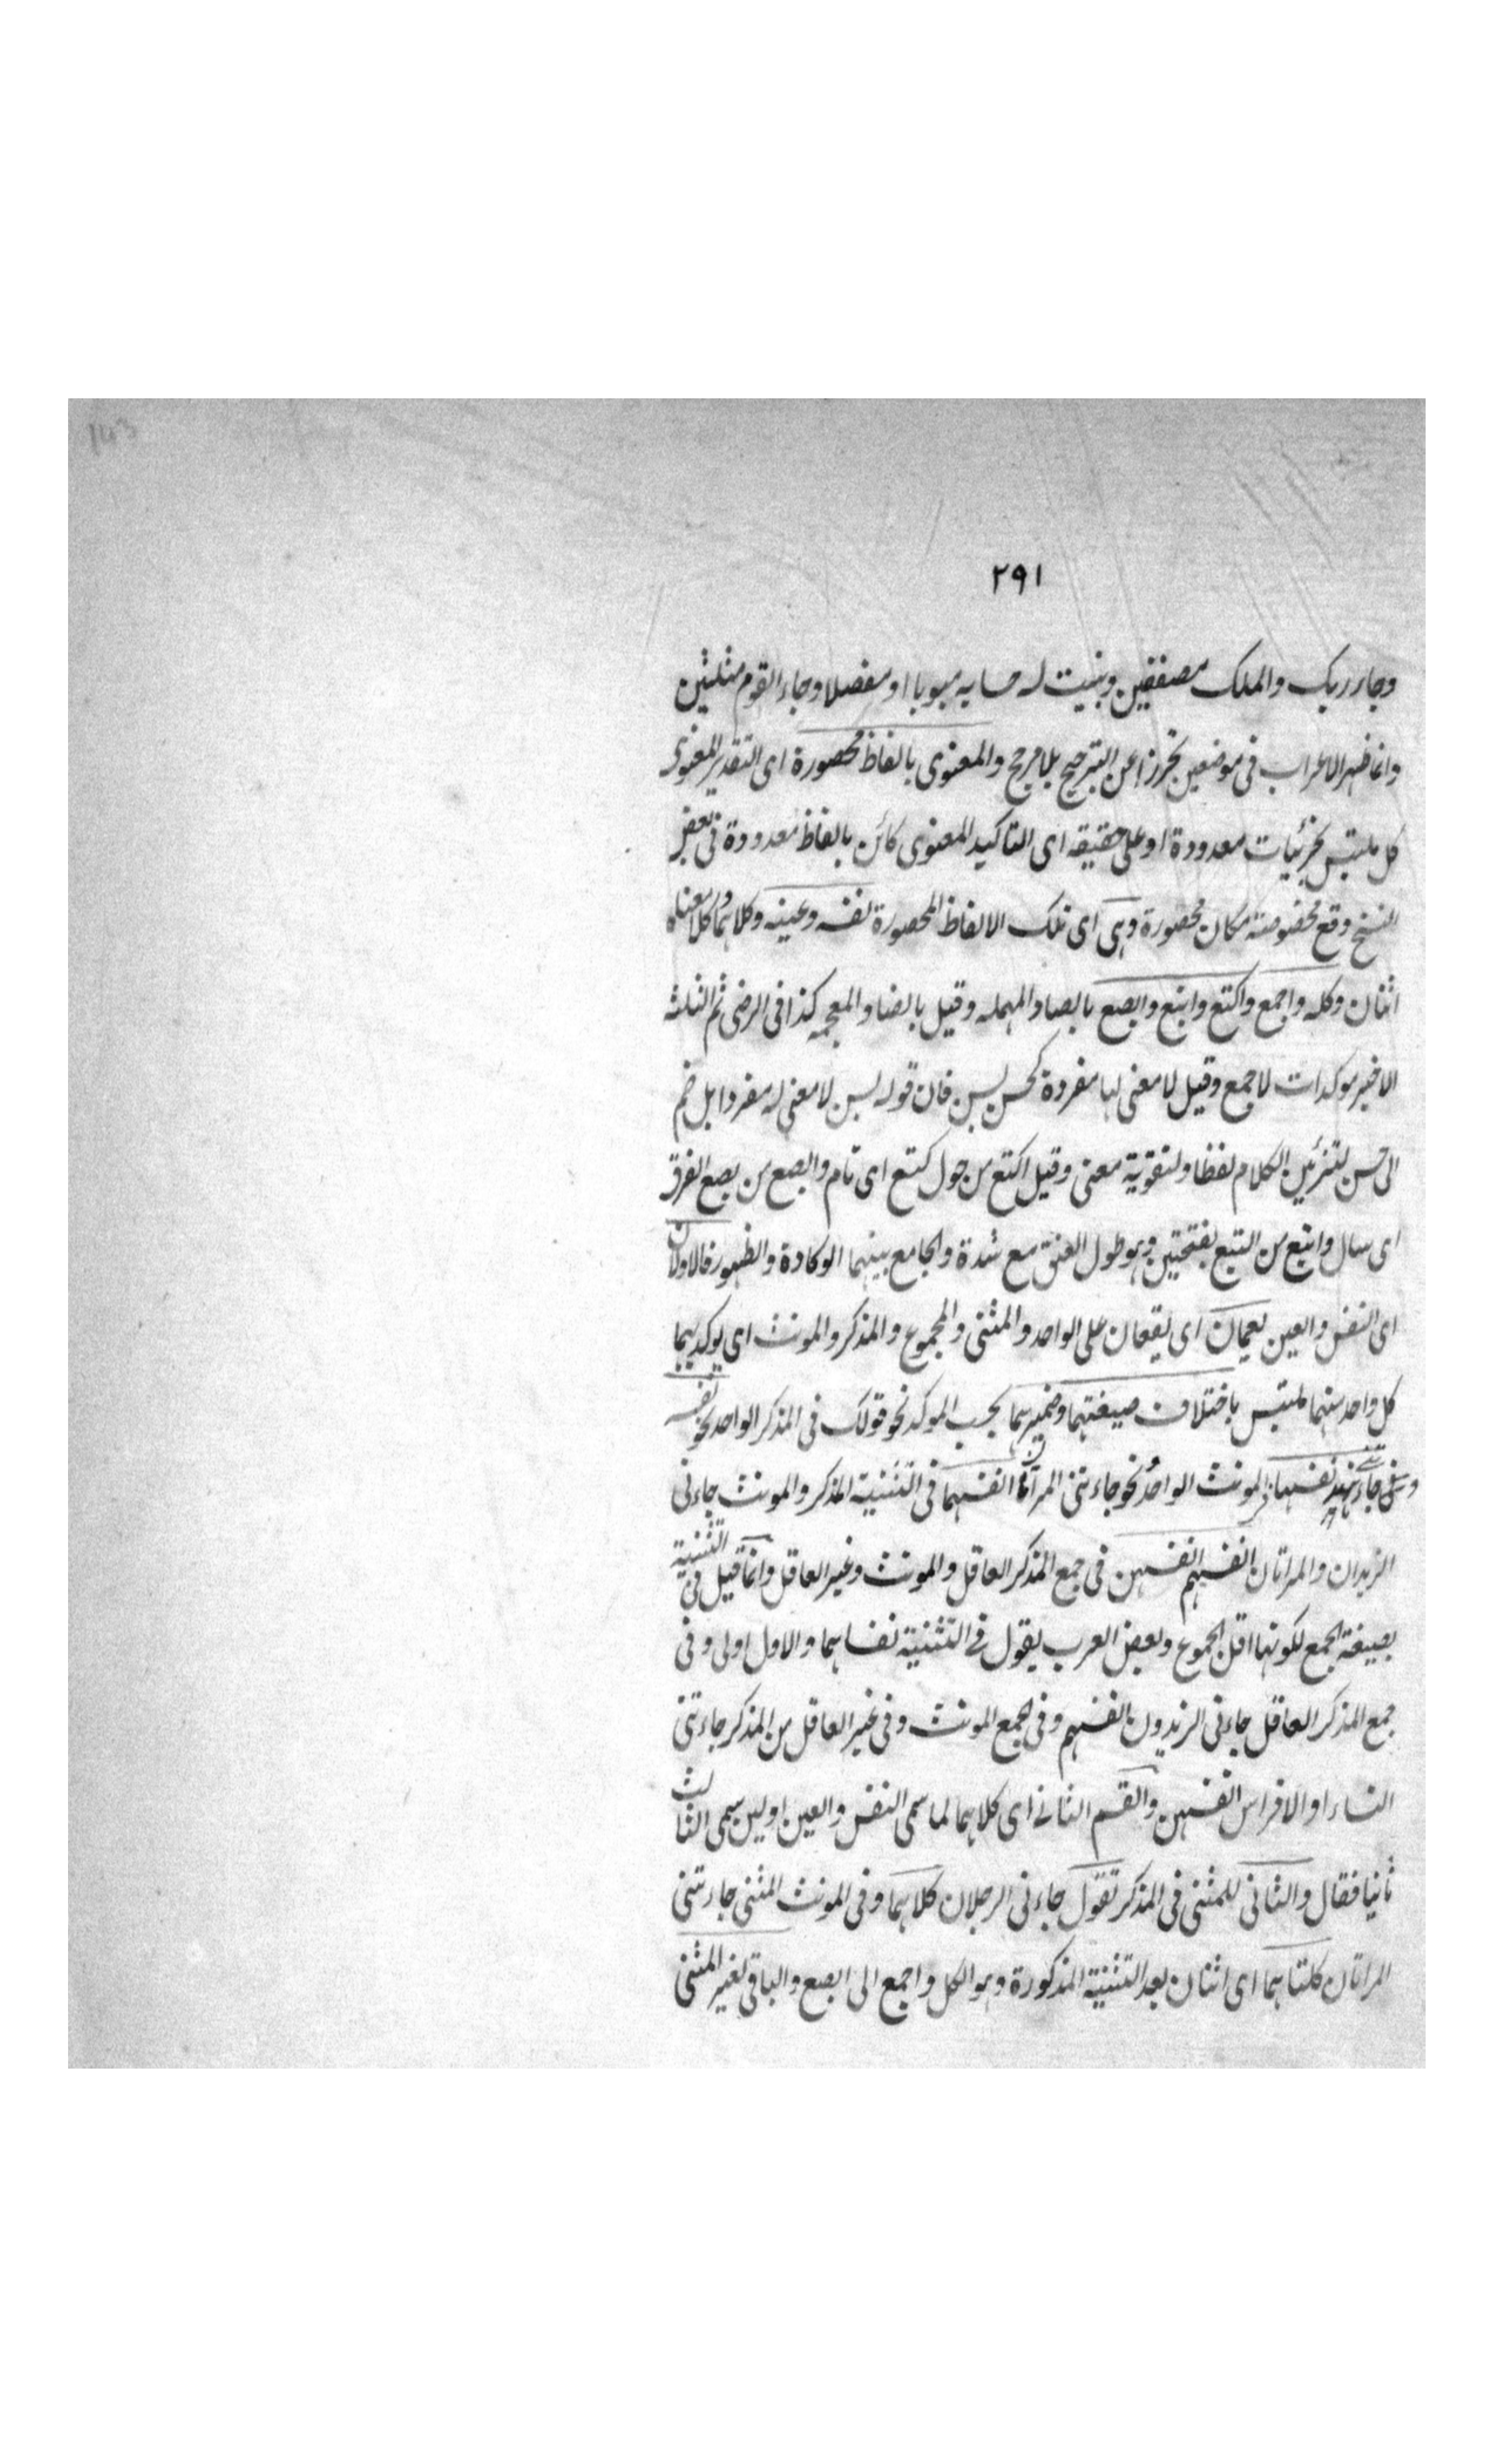 143
٢٩١
وجاء ربك والملك مصففين وبنيت له حسابه مبوبا او مفصلا وجاء القوم مثلثين
وانما ظهر الاعراب فى موضعين تحرزا عن الترجيح بلا مرجح والمعنوى بالفاظ محصورة اى التقدير المعنوى
كل ملتبس بجزئيات معدودة او على حقيقه اى التاكيد المعنوى كائن بالفاظ معدودة فى بعض
النسخ وقع مخصوصة مكان محصورة وهى اى تلك الالفاظ المحصورة نفسه وعينه وكلاهما وكل معناه
اثنان وكله واجمع واكتع وابتع وابصع بالصاد المهمله وقيل بالضاد المعجمه كذا فى الرضى ثم الثلثة
الاخير موكدات لاجمع وقيل لا معنى لها مفردة كحسن بسن فان قوله بسن لا معنى له مفردا بل ضم
الى حسن لتزئين الكلام لفظا ولتقوية معنى وقيل اكتع من حول كتيع اى تام وابصع من بصع العرق
اى سال وابتع من البتع بفتحتين وهو طول العنق مع شدة والجامع بينهما الوكادة والظهور فالاولان
اى النفس والعين يعمان اى يقعان على الواحد والمثنى والمجموع والمذكر والمونث اى يوكد بهما
كل واحد منهما ملتبس باختلاف صيغتهما وضميرهما بحسب الموكد نحو قولك فى المذكر الواحد نحو نفسه
وفى جاءتنى هند نفسها فى المونث الواحد نحو جاءتنى المرأتان انفسهما فى التثنية المذكر والمونث جاءنى
الزيدان والمراتان انفسهم انفسهن فى جمع المذكر العاقل والمونث وغير العاقل وانما قيل فى التثنية
بصيغة الجمع لكونها اقل الجموع وبعض العرب يقول فى التثنية نفساهما والاول اولى وفى
جمع المذكر العاقل جاءنى الزيدون انفسهم وفى الجمع المونث وفى غير العاقل من المذكر جاءتنى
النساء او الافراس انفسهن والقسم الثانى اى كلاهما لما سمى النفس والعين اولين سمى الثالث
ثانيا فقال والثانى للمثنى فى المذكر تقول جاءنى الرجلان كلاهما وفى المونث المثنى جاءتنى
المراتان كلتاهما اى اثنان بعد التثنية المذكورة وهو الكل واجمع الى ابصع والباقى لغير المثنى